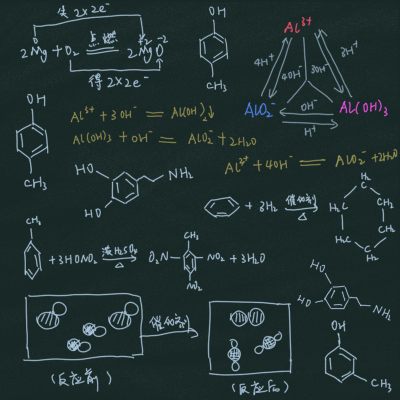 失2x2e⁻
2Mg + O₂ 点燃 2MgO
0 +2 -2
得2x2e⁻
OH
CH₃
Al³⁺
4H⁺ 4OH⁻ 3OH⁻ 3H⁺
AlO₂⁻ OH⁻ Al(OH)₃
H⁺
OH
CH₃
Al³⁺ + 3OH⁻ = Al(OH)₃↓
Al(OH)₃ + OH⁻ = AlO₂⁻ + 2H₂O
Al³⁺ + 4OH⁻ = AlO₂⁻ + 2H₂O
HO NH₂
HO
+ 3H₂ 催化剂 △
H₂C CH₂ CH₂ C H₂ H₂C C H₂
CH₃
+ 3HONO₂ 浓H₂SO₄ △
CH₃
O₂N NO₂ + 3H₂O
NO₂
HO
HO NH₂
催化剂
(反应前)
(反应后)
OH
CH₃